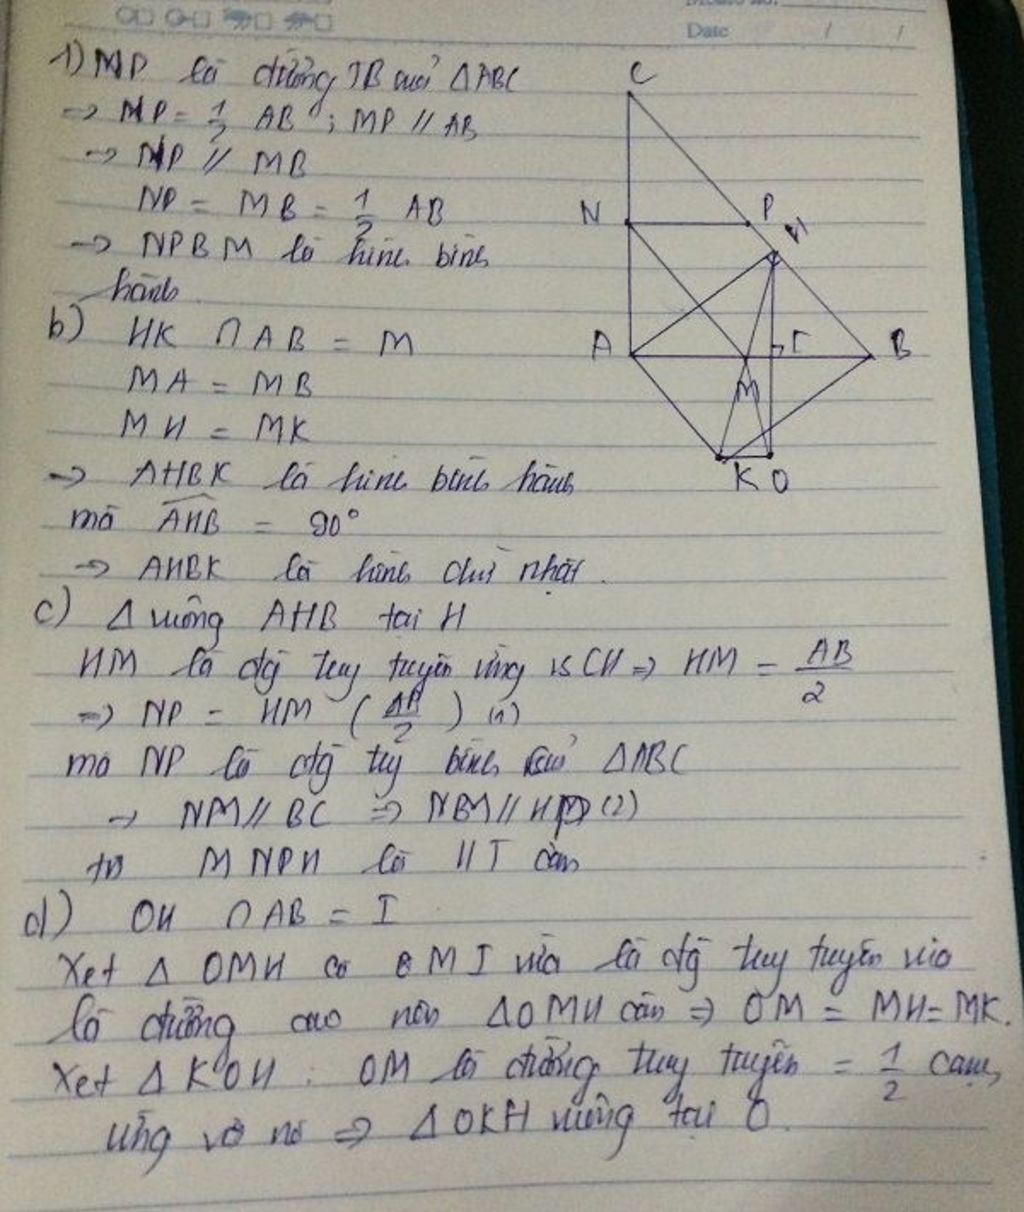 Date / /
1) NP là đường TB của ΔABC
→ NP = 1/2 AB ; MP // AB
→ NP // MB
NP = MB = 1/2 AB
→ NPBM là hình bình
hành.
b) HK ∩ AB = M
MA = MB
MH = MK
→ AHBK là hình bình hành
mà AHB = 90°
→ AHBK là hình chữ nhật.
c) Δ vuông AHB tại H
HM là đg tuy tuyến ứng vs CH ⇒ HM = AB/2
⇒ NP = HM (AB/2) (1)
mà NP là đg tug bình của ΔABC
→ NM // BC ⇒ NM // HP (2)
MNPH là HT cân
d) OH ∩ AB = I
Xét Δ OMH có MI vừa là đg tuy tuyến vừa
là đường cao nên ΔOMH cân ⇒ OM = MH = MK.
Xét Δ KOH : OM là đường tuy tuyến = 1/2 cạnh
ứng với nó ⇒ ΔOKH vuông tại O.
C
N
P
H
A
I
B
M
K
O